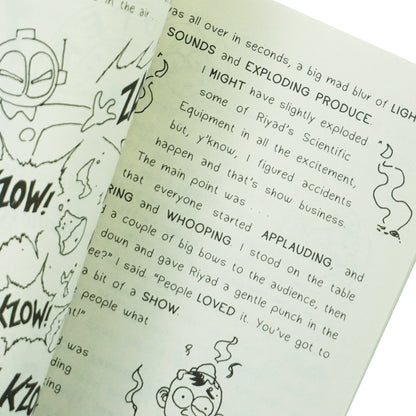 in the air
was all over in seconds, a big mad blur of LIGH
SOUNDS and EXPLODING PRODUCE.
I MIGHT have slightly exploded
some of Riyad's Scientific
Equipment in all the excitement,
but, y'know, I figured accidents
happen and that's show business.
The main point was . . .
that everyone started APPLAUDING, and
RING and WHOOPING. I stood on the table
d a couple of big bows to the audience, then
down and gave Riyad a gentle punch in the
ee?" I said. "People LOVED it. You've got to
a bit of a SHOW.
people what
t!"
d was
ding
king
KZOW!
KZOW!
KZOW